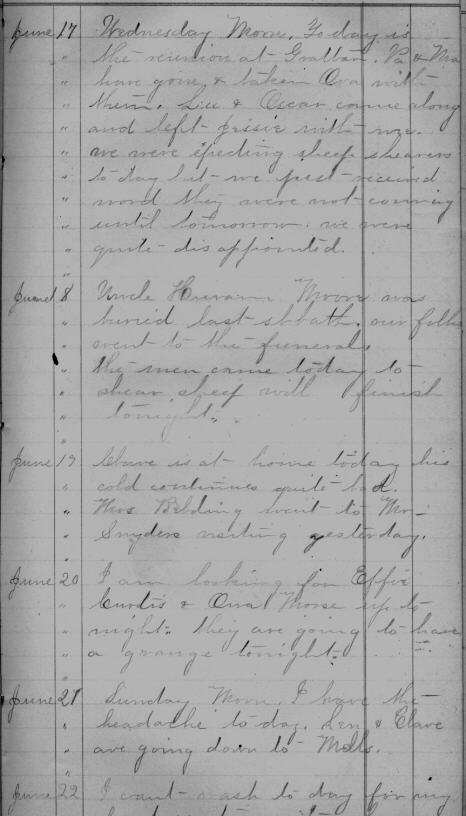 June 17 Wednesday Morn. To day is
" the reunion at Grattan. Pa & Ma
" have gone, & taken Ora with
" them. Liu & Oscar came along
" and left Jessie with me.
" we were epecting sheep shearers
" to day but we just received
" word they were not coming
" until tomorrow. we were
" quite disappointed.
"
June 18 Uncle Huram Moore was
" buried last sbbath. our folks
" went to the funeral.
" the men came today to
" shear sheep will finish
" tonight.
"
June 19 Clave is at home today his
" cold continues quite bad.
" Mrs Belding went to Mr
" Snyders visiting yesterday.
"
June 20 I am looking for Effie
" Curtis & Ona Morse up to
" night. they are going to have
" a grange tonight.
"
June 21 Sunday Morn. I have the
" headache to day. Len & Clave
" are going down to Mills.
"
June 22 I cant wash to day for my